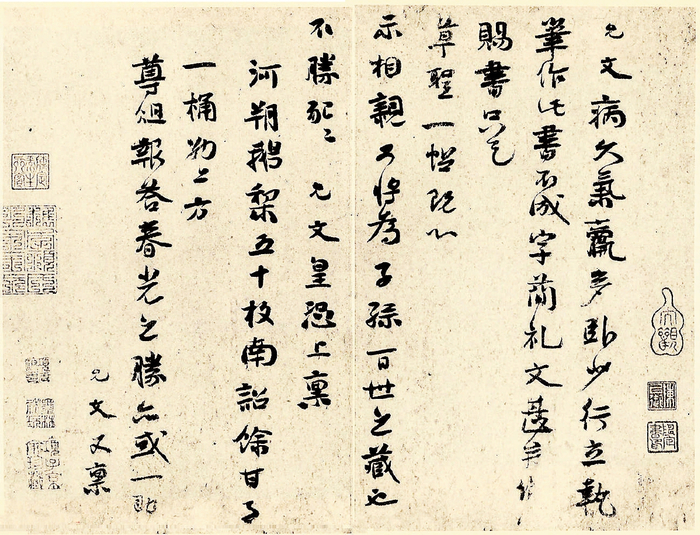 允文病久氣羸多臥少行立執
筆作此書不成字簡札文
賜書
草聖一幅既以
示相親又將為子孫百世之藏也
不勝死〻允文皇恐上稟
河朔鵝梨五十枚南詔餘甘子
一桶勒上方
尊俎報答春光之勝亦或一助
允文又稟